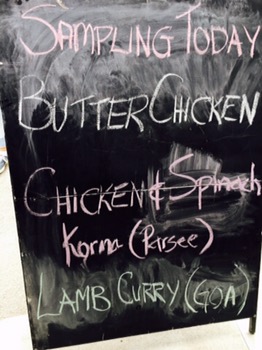 SAMPLING TODAY
BUTTER CHICKEN
CHICKEN & Spinach
Korma (Parsee)
LAMB CURRY (GOA)